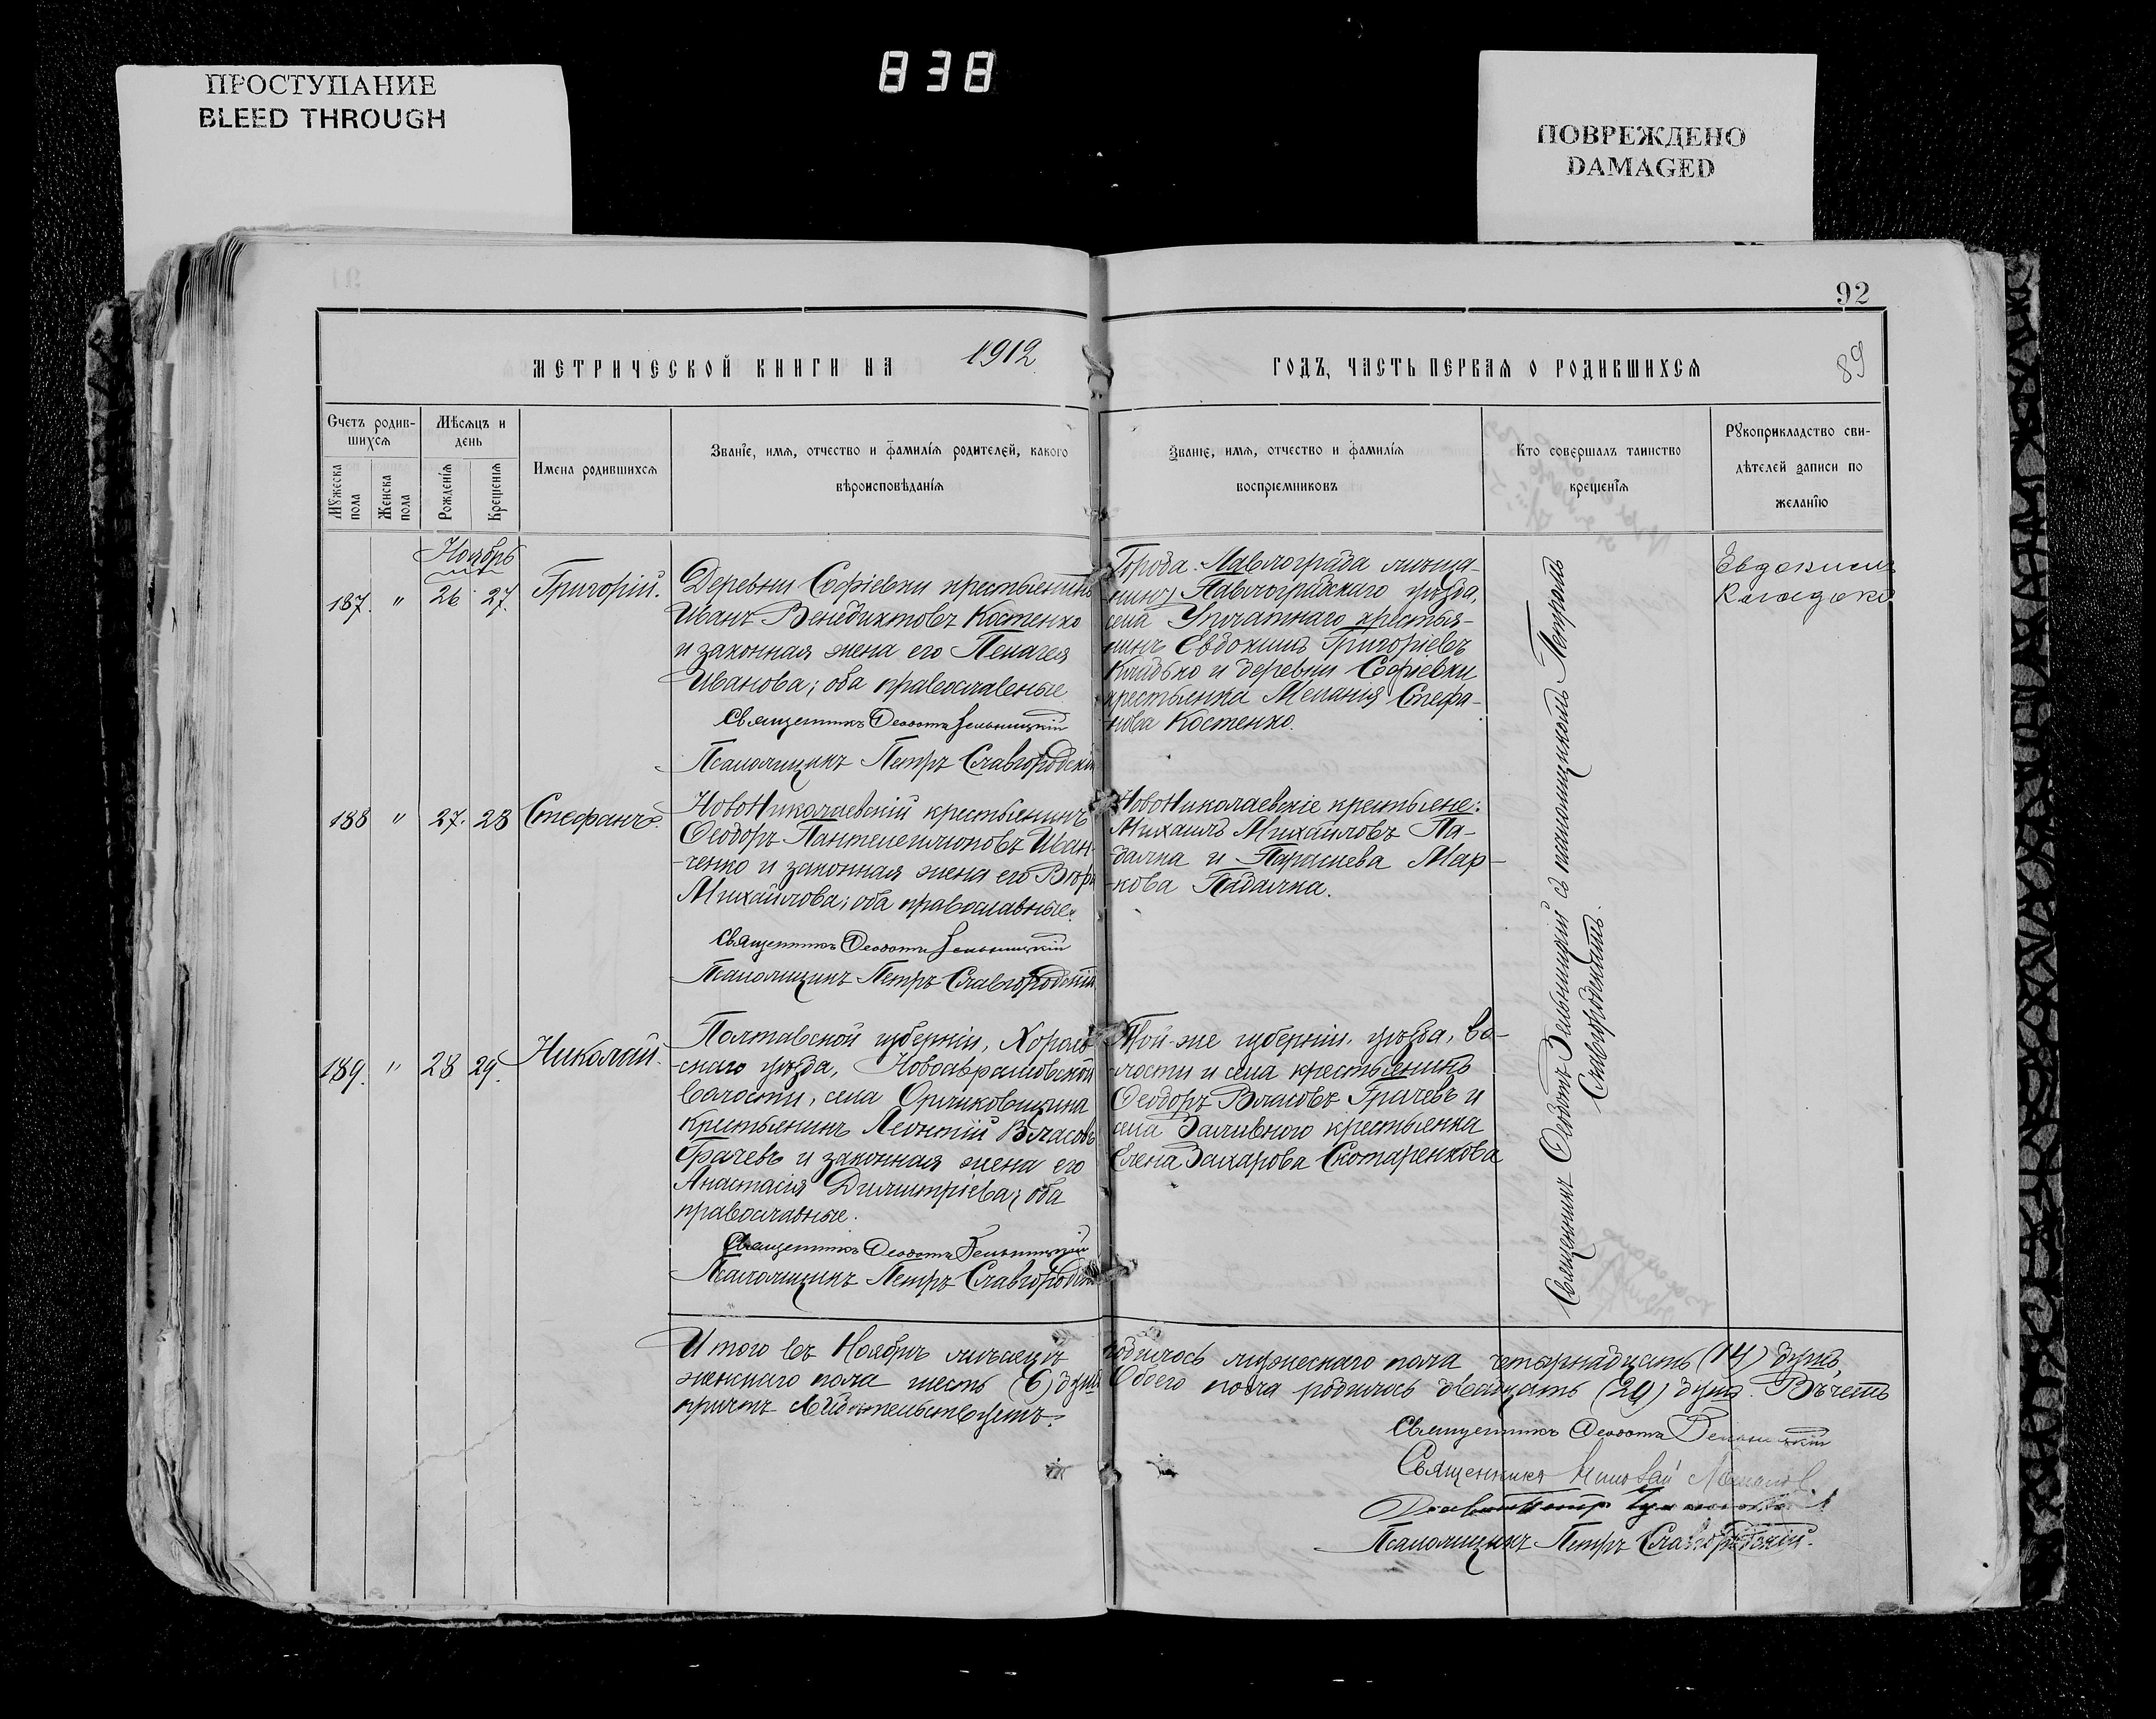 838
ПРОСТУПАНИЕ
BLEED THROUGH
ПОВРЕЖДЕНО
DAMAGED
92
89
МЕТРИЧЕСКОЙ КНИГИ НА 1912
ГОДЪ, ЧАСТЬ ПЕРВАЯ О РОДИВШИХСЯ
Счетъ родив-
шихся
Мѣсяцъ и
день
Мужеска
пола
Женска
пола
Рожденія
Крещенія
Имена родившихся
Званіе, имя, отчество и фамилія родителей, какого
вѣроисповѣданія
Званіе, имя, отчество и фамилія
воспріемниковъ
Кто совершалъ таинство
крещенія
Рукоприкладство сви-
дѣтелей записи по
желанію
Ноябрь
187. " 26 27. Григорій.
Деревни Софіевки крестьянинъ
Иванъ Венедиктовъ Костенко
и законная жена его Пелагея
Иванова; оба православные
Священникъ Феодотъ Зельницкій
Псаломщикъ Петръ Славгородскій
Города Павлограда мѣща-
Павлоградскаго уѣзда,
села крестья-
нинъ Евдокимъ Григоріевъ
и деревни Софіевки
крестьянка Меланія Стефа-
нова Костенко.
Евдокимъ
188 " 27. 28 Стефанъ.
НовоНиколаевскій крестьянинъ
Феодоръ Пантелеимоновъ Иван-
ченко и законная жена его
Михайлова; оба православные.
Священникъ Феодотъ Зельницкій
Псаломщикъ Петръ Славгородскій
НовоНиколаевскіе крестьяне:
Михаилъ Михайловъ Па-
далка и Параскева Мар-
кова Падалка.
189. " 28 29. Николай.
Полтавской губерніи, Хороль-
скаго уѣзда, Новоаврамовской
волости, села Орликовщина
крестьянинъ Леонтій Власовъ
Грачевъ и законная жена его
Анастасія Димитріева; оба
православные.
Священникъ Феодотъ Зельницкій
Псаломщикъ Петръ Славгородскій
Той-же губерніи, уѣзда, во-
лости и села крестьянинъ
Феодоръ Власовъ Грачевъ и
села Заливного крестьянка
Елена Захарова Скотаренкова
Священникъ Феодотъ Зельницкій съ псаломщикомъ Петромъ
Славгородскимъ.
Итого въ Ноябрѣ мѣсяцѣ родилось мужескаго пола четырнадцать (14) душъ,
женскаго пола шесть (6) душъ Обоего пола родилось двадцать (20) душъ.
причтъ свидѣтельствуетъ:
Священникъ Феодотъ Зельницкій
Священникъ Николай
Псаломщикъ Петръ Славгородскій.